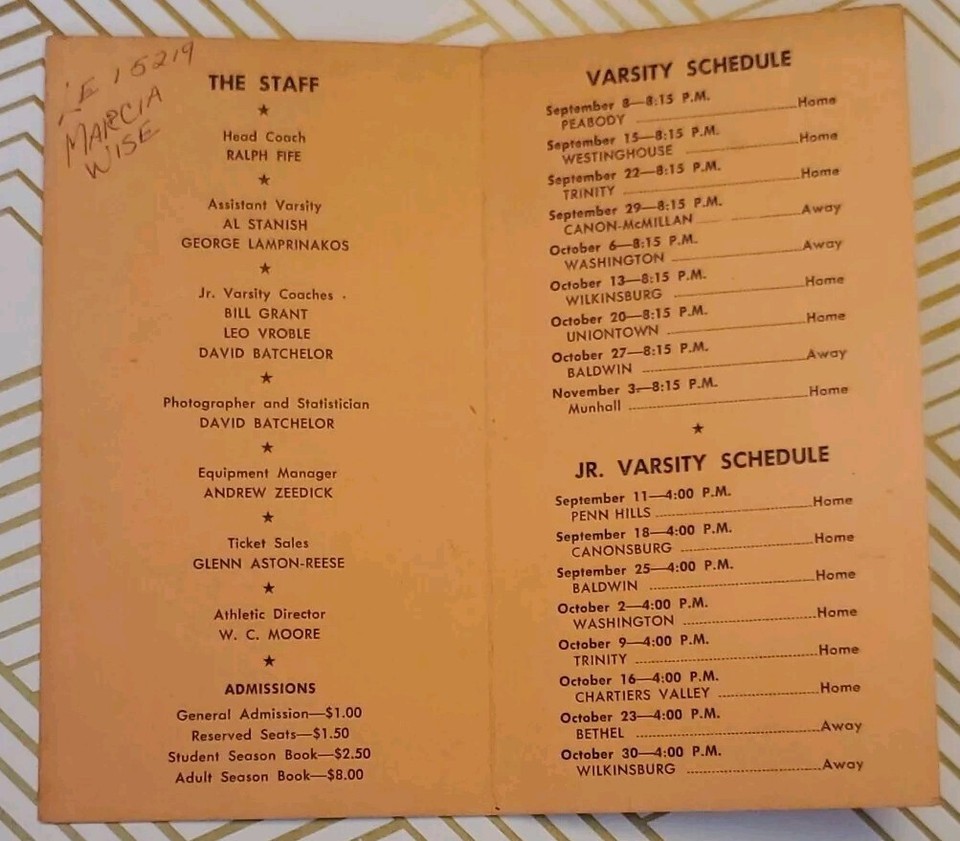 LE 15219
MARCIA
WISE
THE STAFF
★
Head Coach
RALPH FIFE
★
Assistant Varsity
AL STANISH
GEORGE LAMPRINAKOS
★
Jr. Varsity Coaches
BILL GRANT
LEO VROBLE
DAVID BATCHELOR
★
Photographer and Statistician
DAVID BATCHELOR
★
Equipment Manager
ANDREW ZEEDICK
★
Ticket Sales
GLENN ASTON-REESE
★
Athletic Director
W. C. MOORE
★
ADMISSIONS
General Admission—$1.00
Reserved Seats—$1.50
Student Season Book—$2.50
Adult Season Book—$8.00
VARSITY SCHEDULE
September 8—8:15 P.M.
PEABODY ........ Home
September 15—8:15 P.M.
WESTINGHOUSE ........ Home
September 22—8:15 P.M.
TRINITY ........ Home
September 29—8:15 P.M.
CANON-McMILLAN ........ Away
October 6—8:15 P.M.
WASHINGTON ........ Away
October 13—8:15 P.M.
WILKINSBURG ........ Home
October 20—8:15 P.M.
UNIONTOWN ........ Home
October 27—8:15 P.M.
BALDWIN ........ Away
November 3—8:15 P.M.
Munhall ........ Home
★
JR. VARSITY SCHEDULE
September 11—4:00 P.M.
PENN HILLS ........ Home
September 18—4:00 P.M.
CANONSBURG ........ Home
September 25—4:00 P.M.
BALDWIN ........ Home
October 2—4:00 P.M.
WASHINGTON ........ Home
October 9—4:00 P.M.
TRINITY ........ Home
October 16—4:00 P.M.
CHARTIERS VALLEY ........ Home
October 23—4:00 P.M.
BETHEL ........ Away
October 30—4:00 P.M.
WILKINSBURG ........ Away